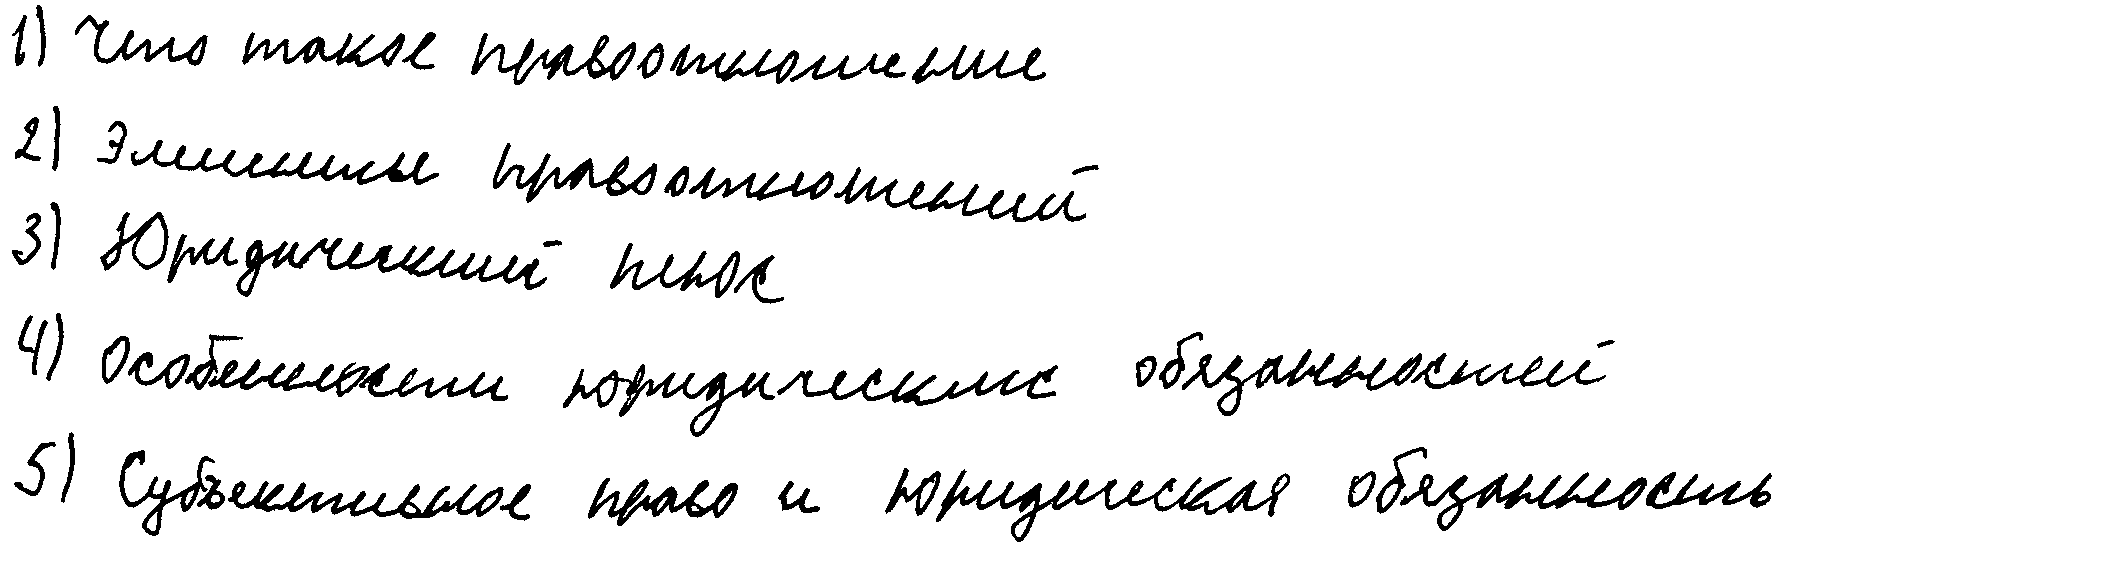 1) Что такое правоотношение
2) Элементы правоотношений
3) Юридический
4) Особенности юридических обязанностей
5) Субъективное право и юридическая обязанность